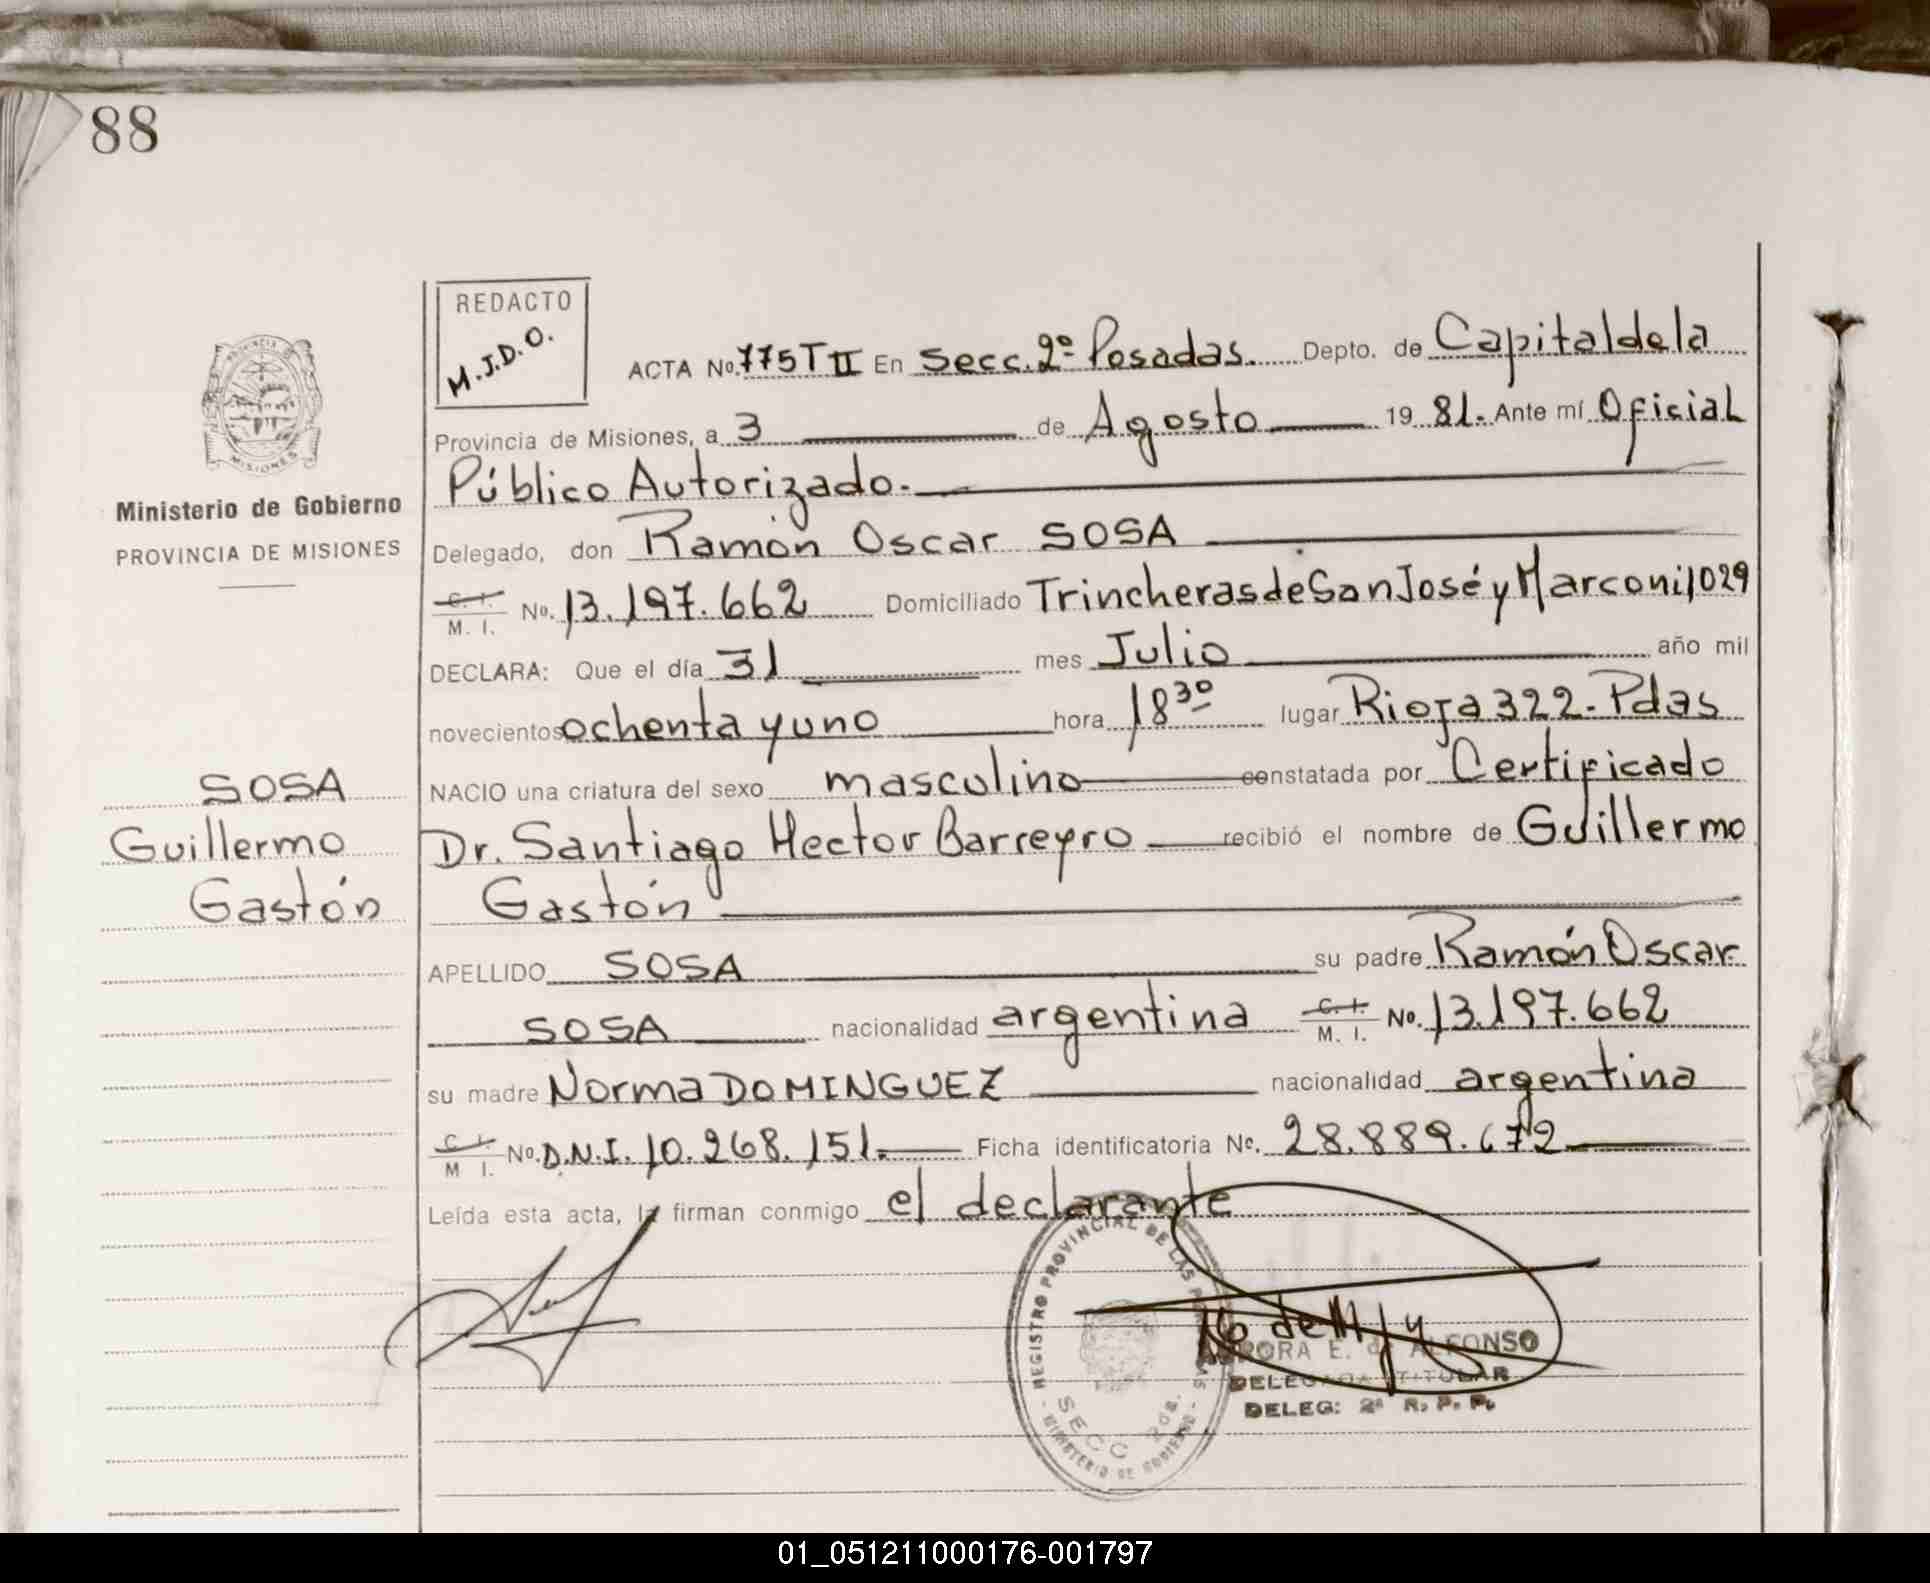 88
REDACTO
M.J.D.O.
ACTA No. 775 T II En Secc. 2º Posadas. Depto. de Capital de la
Provincia de Misiones, a 3 de Agosto 19 81. Ante mí Oficial
Público Autorizado.-
Delegado, don Ramón Oscar SOSA
C. I. / M. I. No. 13.197.662 Domiciliado Trincheras de San José y Marconi 1029
DECLARA: Que el día 31 mes Julio año mil
novecientos ochenta y uno hora 18 30 lugar Rioja 322.- Pdas
NACIO una criatura del sexo masculino constatada por Certificado
Dr. Santiago Hector Barreyro recibió el nombre de Guillermo
Gastón
APELLIDO SOSA su padre Ramón Oscar
SOSA nacionalidad argentina C. I. / M. I. No. 13.197.662
su madre Norma DOMINGUEZ nacionalidad argentina
C. I. / M I. No. D.N.I. 10.268.151.- Ficha identificatoria No. 28.889.672
Leída esta acta, la firman conmigo el declarante
MISIONES
Ministerio de Gobierno
PROVINCIA DE MISIONES
SOSA
Guillermo
Gastón
REGISTRO PROVINCIAL DE LAS
SECC 2da.
MINISTERIO DE GOBIERNO
E. de ALFONSO
DELEGADA TITULAR
DELEG: 2ª R. P. P.
01_051211000176-001797